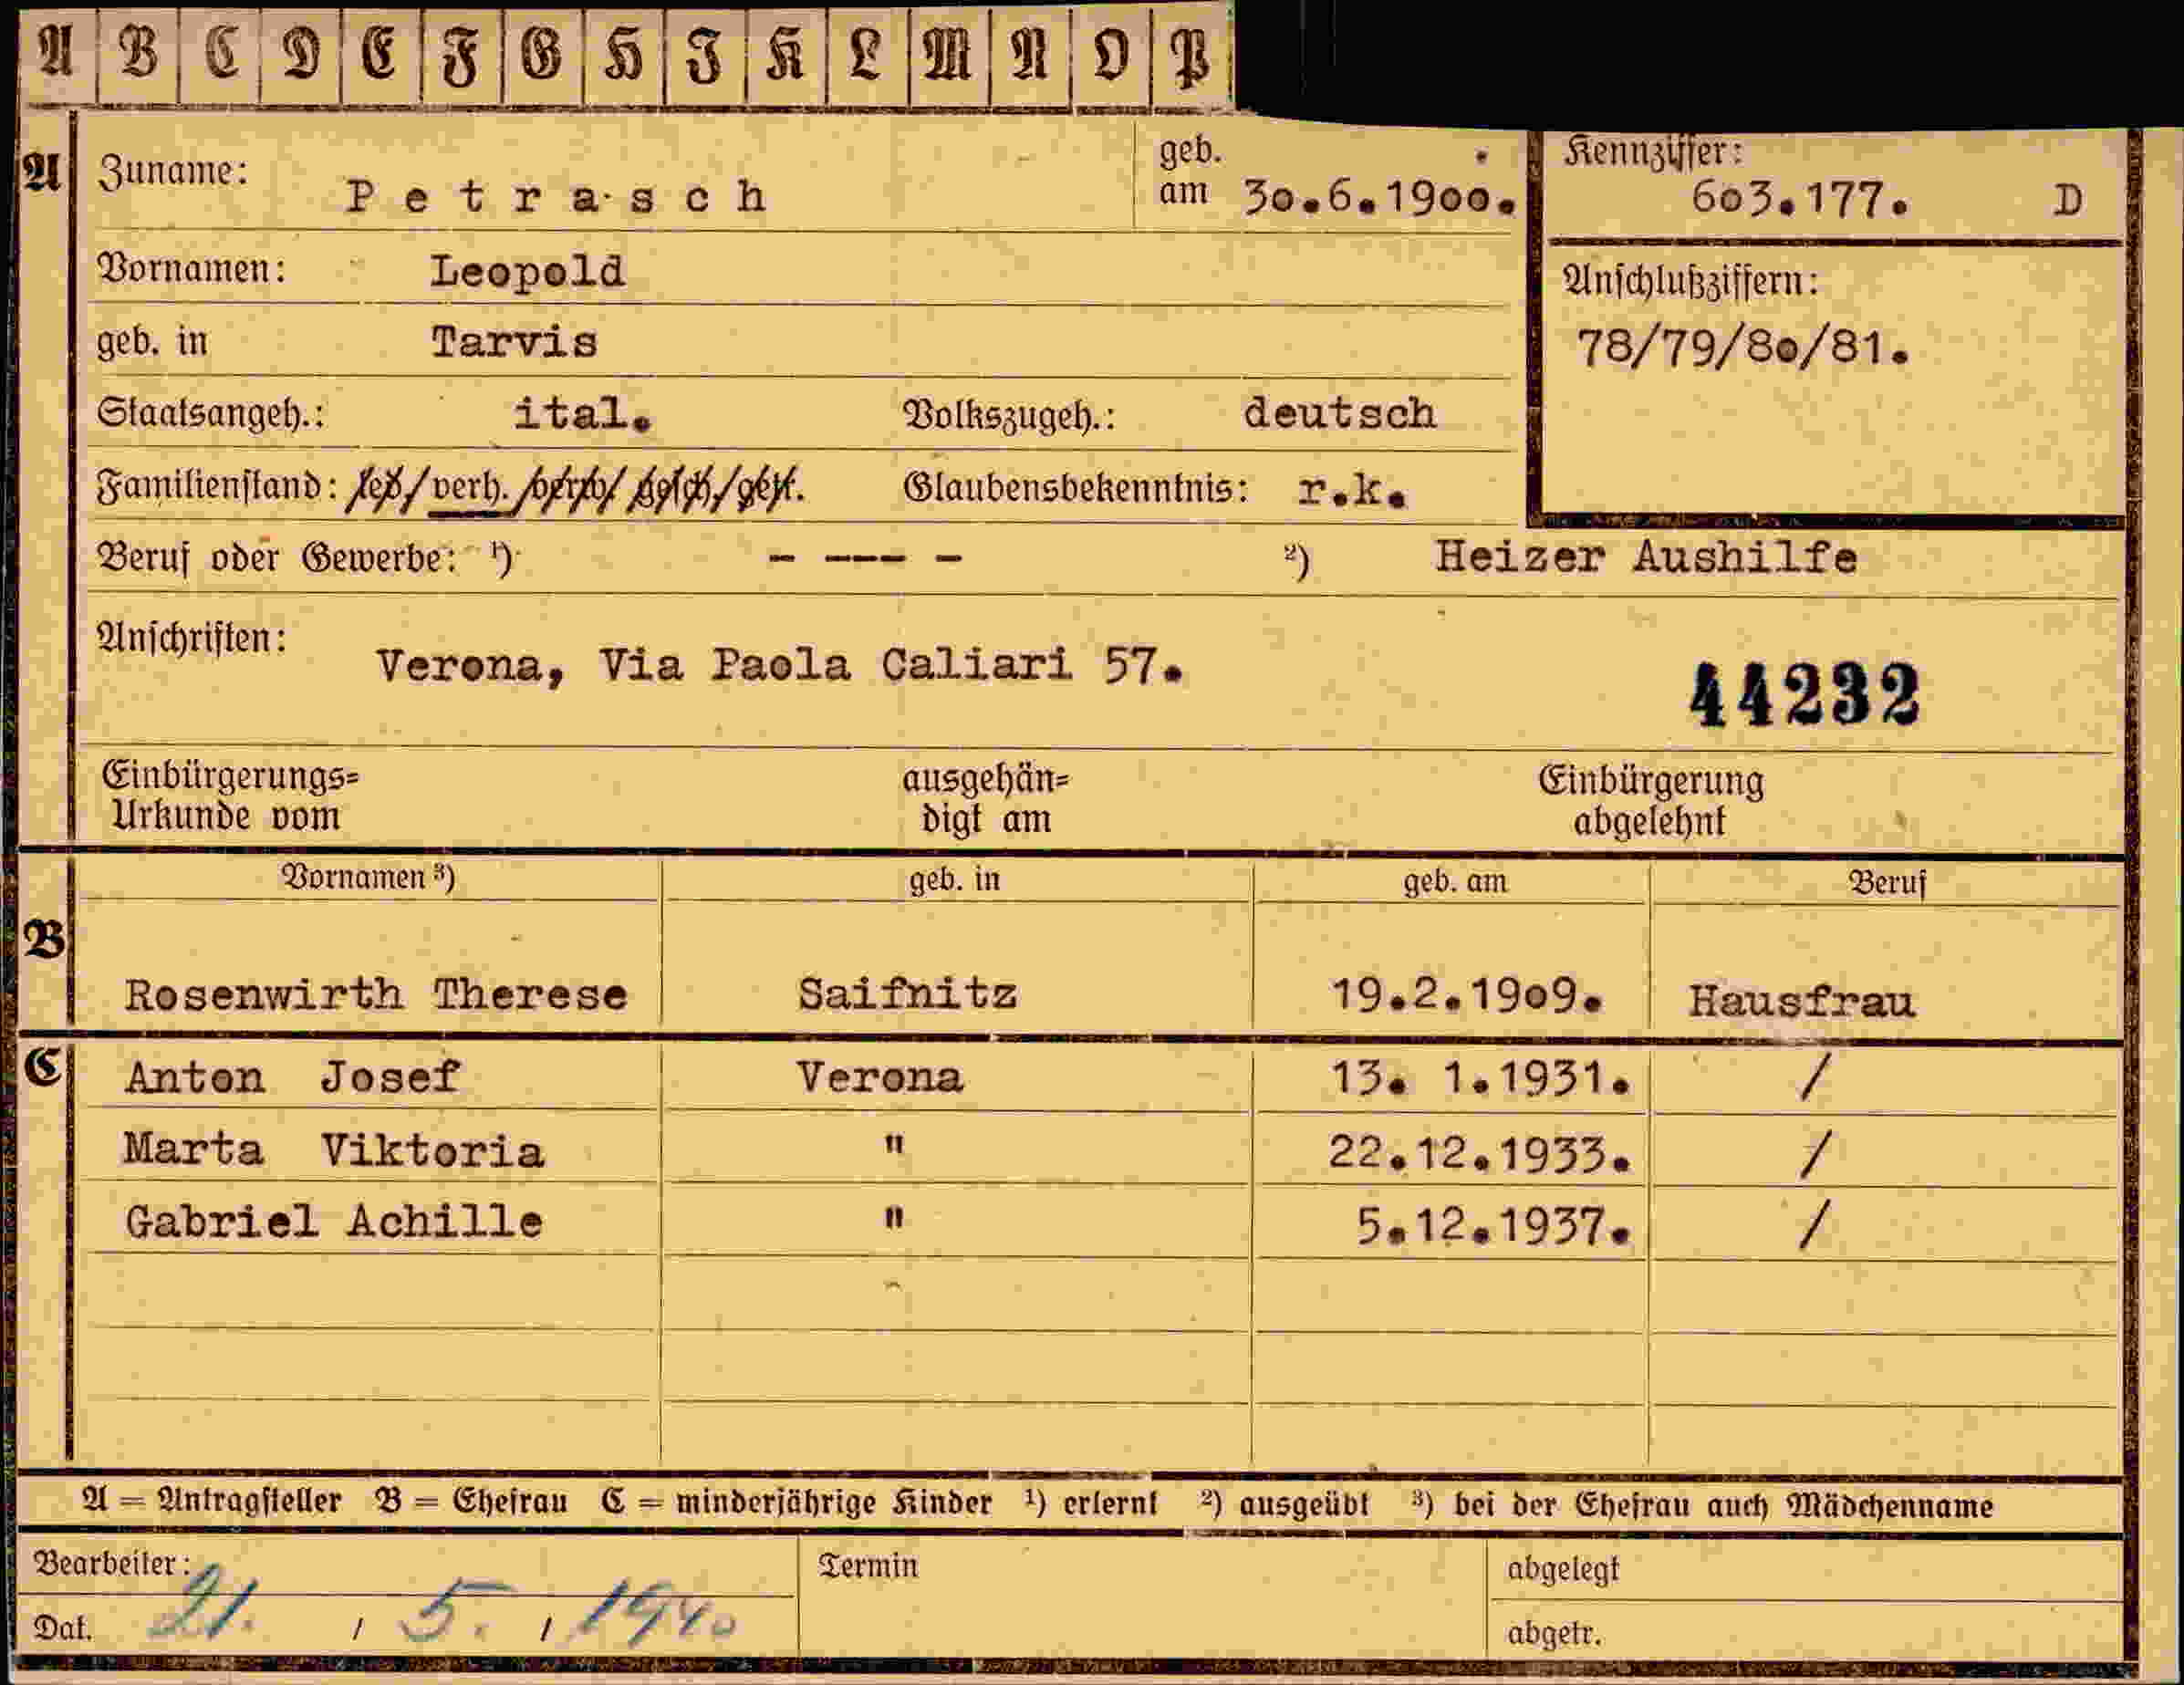 A B C D E F G H I K L M N O P
A Zuname: Petrasch geb. am 30.6.1900. Kennziffer: 603.177. D
Vornamen: Leopold
geb. in Tarvis
Anschlußziffern:
78/79/80/81.
Staatsangeh.: ital. Volkszugeh.: deutsch
Familienstand: led./verh./verw./gesch./get. Glaubensbekenntnis: r.k.
Beruf oder Gewerbe: ¹) - --- - ²) Heizer Aushilfe
Anschriften: Verona, Via Paola Caliari 57.
44232
Einbürgerungs= ausgehän= Einbürgerung
Urkunde vom digt am abgelehnt
Vornamen ³) geb. in geb. am Beruf
B Rosenwirth Therese Saifnitz 19.2.1909. Hausfrau
C Anton Josef Verona 13. 1.1931. /
Marta Viktoria " 22.12.1933. /
Gabriel Achille " 5.12.1937. /
A = Antragsteller B = Ehefrau C = minderjährige Kinder ¹) erlernt ²) ausgeübt ³) bei der Ehefrau auch Mädchenname
Bearbeiter: Termin abgelegt
Dat. 21. / 5. / 1940 abgetr.